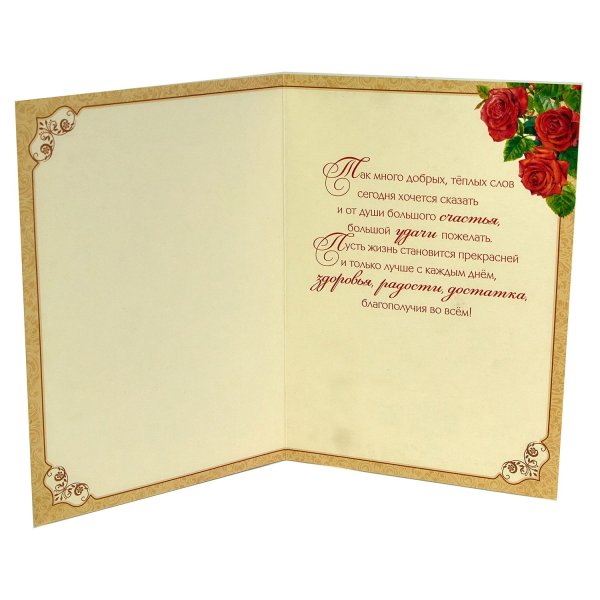 Так много добрых, тёплых слов
сегодня хочется сказать
и от души большого счастья,
большой удачи пожелать.
Пусть жизнь становится прекрасней
и только лучше с каждым днём,
здоровья, радости, достатка,
благополучия во всём!